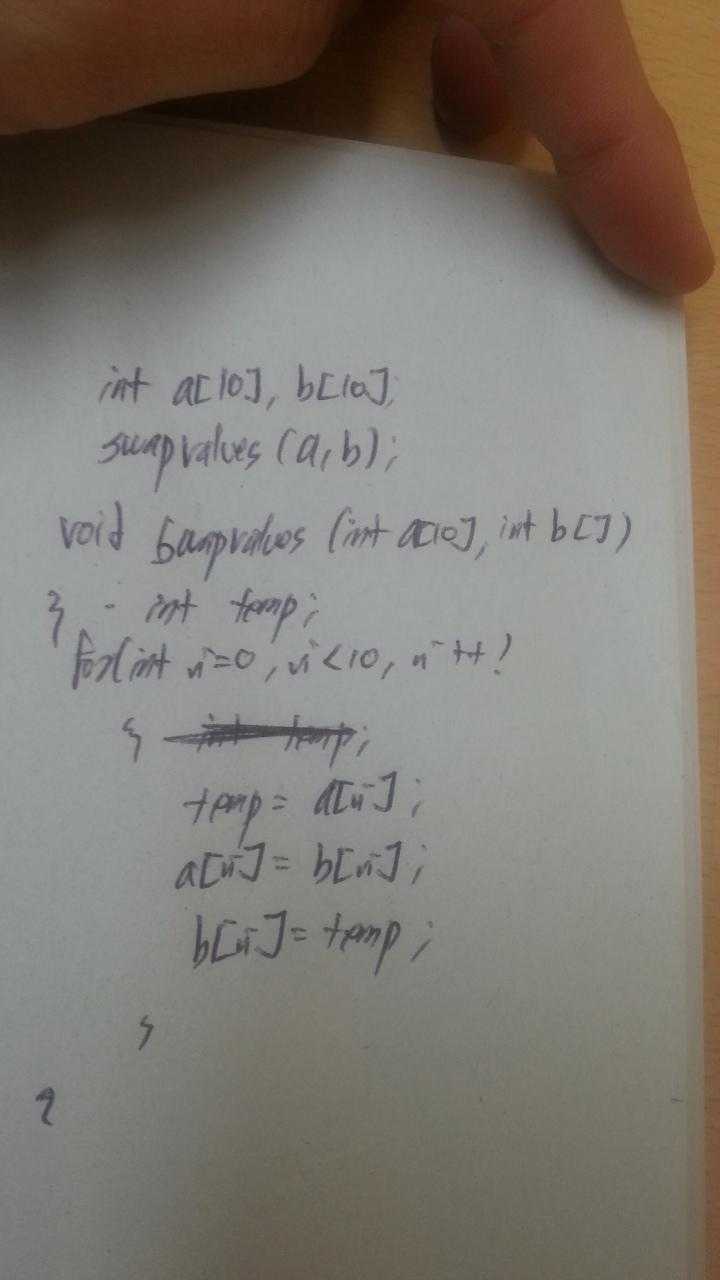 int a[10], b[10];
swapvalues (a, b);
void swapvalues (int a[10], int b[])
{ - int temp;
for(int i=0, i<10, i++)
{ int temp;
temp = a[i];
a[i] = b[i];
b[i] = temp;
}
}